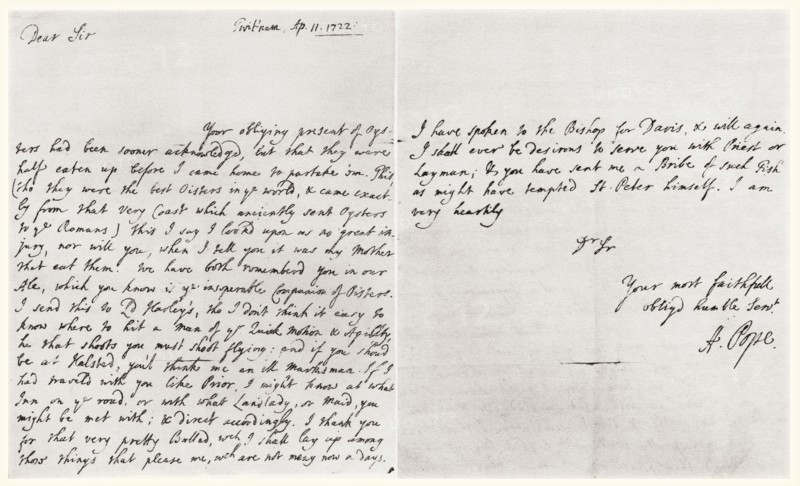 Dear Sir
Twitnam, Ap. 11. 1722.
Your obliging present of Oys-
ters had been sooner acknowledged, but that they were
half eaten up before I came home to partake 'em. This
(tho they were the best Oisters in ye world, & came exact-
ly from that very Coast which anciently sent Oysters
to ye Romans) this I say I look'd upon as no great in-
jury, nor will you, when I tell you it was my Mother
that eat them. We have both rememberd you in our
Ale, which you know is ye inseparable Companion of Oisters.
I send this to Ld Harley's, tho I don't think it easy to
know where to hit a Man of yr Quick Motion & Agility:
he that shoots you must shoot flying: and if you shoud
be at Halsted, you'l think me an ill Marksman. If I
had traveld with you like Prior, I might know at what
Inn on ye road, or with what Landlady, or Maid, you
might be met with; & direct accordingly. I thank you
for that very pretty Ballad, wch I shall lay up among
those things that please me, wch are not many now a days.
I have spoken to the Bishop for Davis, & will again.
I shall ever be desirous to serve you with Priest or
Layman; & you have sent me a Bribe of such Fish
as might have tempted St. Peter himself. I am
very heartily
Dr Sr
Your most faithfull
obligd humble Servt.
A. Pope.